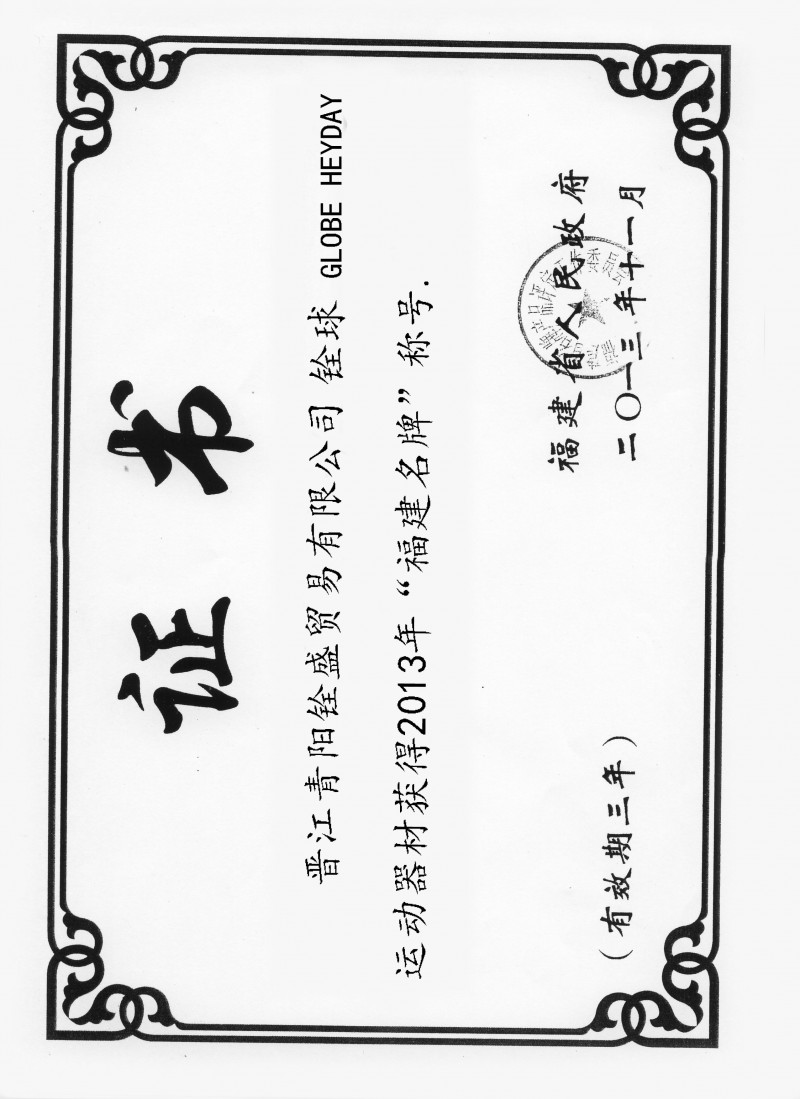 证书
晋江青阳铨盛贸易有限公司 铨球 GLOBE HEYDAY
运动器材获得2013年“福建名牌”称号.
福建省人民政府
二〇一三年十一月
（有效期三年）